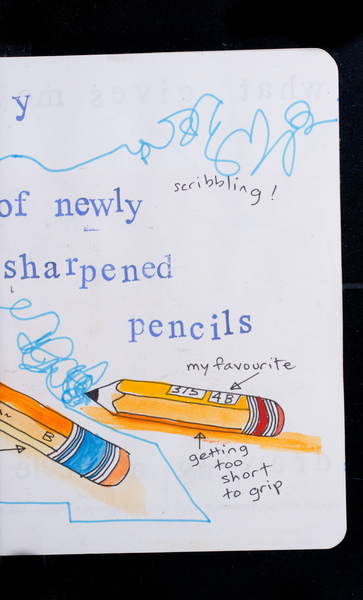 y
scribbling!
of newly
sharpened
pencils
my favourite
315 4B
B
getting
too
short
to grip